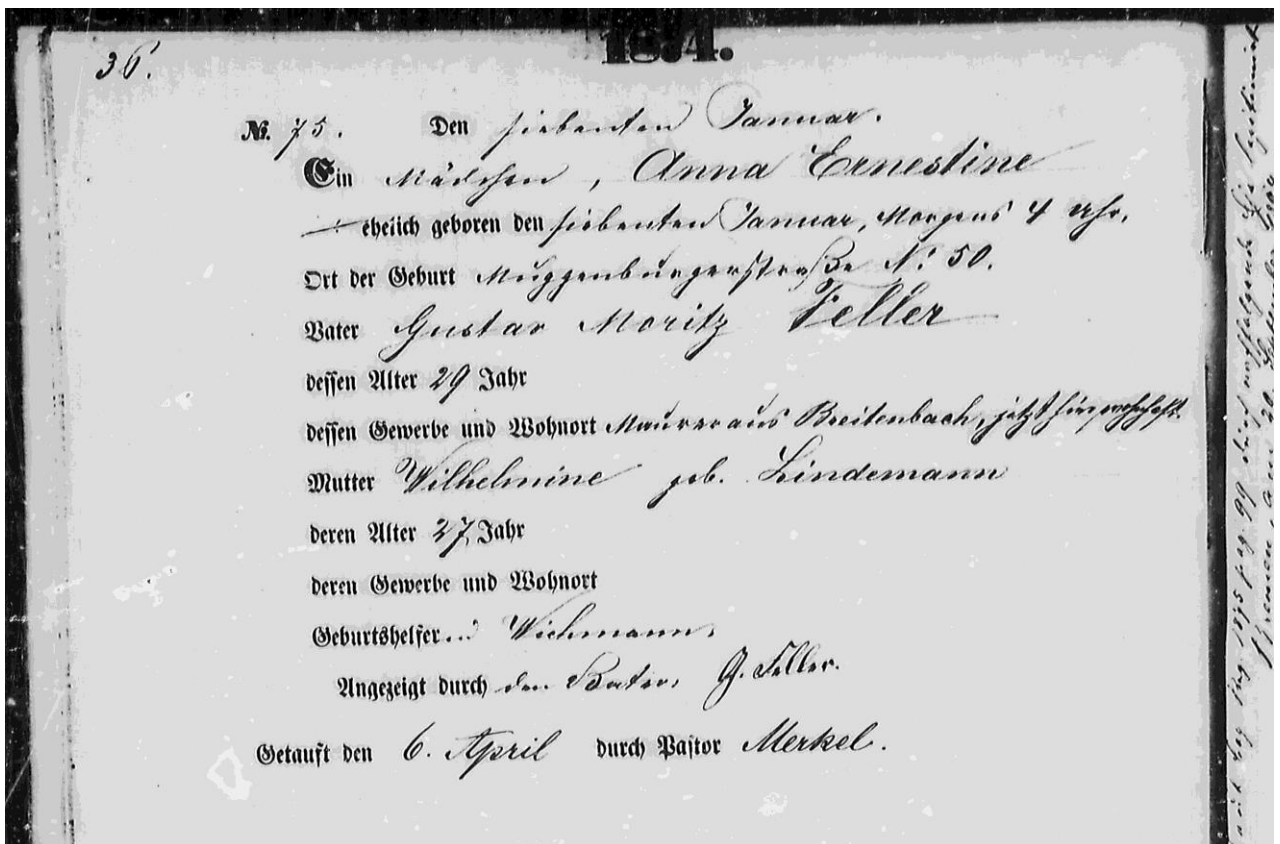 1874.
36.
No. 75. Den siebenten Januar.
Ein Mädchen, Anna Ernestine
— ehelich geboren den siebenten Januar, Morgens 4 Uhr.
Ort der Geburt Muggenburgerstraße No. 50.
Vater Gustav Moritz Feller
dessen Alter 29 Jahr
dessen Gewerbe und Wohnort Maurer aus Breitenbach, jetzt hier wohnhaft
Mutter Wilhelmine geb. Lindemann
deren Alter 27 Jahr
deren Gewerbe und Wohnort
Geburtshelfer Wichmann.
Angezeigt durch den Vater, G. Feller.
Getauft den 6. April durch Pastor Merkel.
Reg. 1875 pag. 99 durch nachfolgende Ehe legitimirt
Bremen, am 20. September